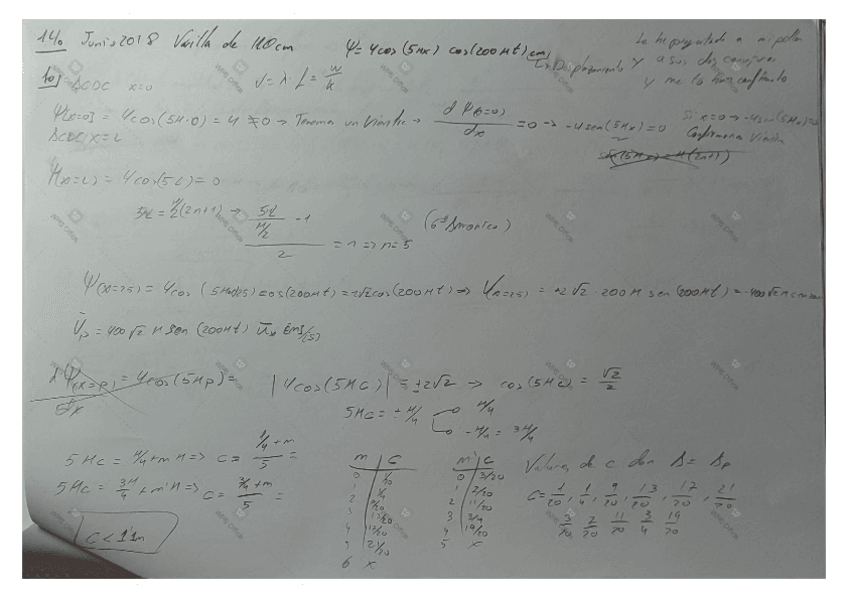 14º Junio 2018 Varilla de 110cm Ψ = 4cos(5πx) cos(200πt) cm
Le he preguntado a mi
y a sus dos
y me lo han confirmado
10) x=0 v = λ·f = w/k
Ψ[x=0] = 4cos(5π·0) = 4 ≠ 0 → Tenemos un Vientre → dΨ(x=0)/dx = 0 => -4sen(5πx) = 0 Si x=0 → -4sen(5πx)=0
Confirmamos Vientre
x=L
Ψ(x=L) = 4cos(5L) = 0
5L = π/2(2n+1) → = n => n=5 (6º Armonico)
Ψ(x=25) = 4cos(200πt) = 2√2cos(200πt) => = ±2√2·200π sen(200πt) = -400√2π
= 400√2 π sen(200πt)
= 4cos(5πp) = |4cos(5πc)| = ±2√2 => cos(5πc) = √2/2
5πc = ±π/4 π/4
-π/4 = 3π/4
5πc = π/4 + mπ => c = (1/4 + m)/5 =
5πc = 3π/4 + m'π => c = (3/4 + m)/5 =
c < 1'1m
m c
0 1/20
1 1/4
2 9/20
3 13/20
4 17/20
5 21/20
6 x
m' c
0 3/20
1 7/20
2 11/20
3 3/4
4 19/20
5 x
Valores de c dan A = Ap
c = 1/20, 1/4, 9/20, 13/20, 17/20, 21/20
3/20 7/20 11/20 3/4 19/20
WPS Office